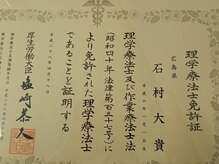 理学療法士免許証
広島県
石村大貴
理学療法士及び作業療法士法
(昭和四十年法律第百三十七号)
により免許された理学療法士
であることを証明する
厚生労働大臣 塩崎恭久